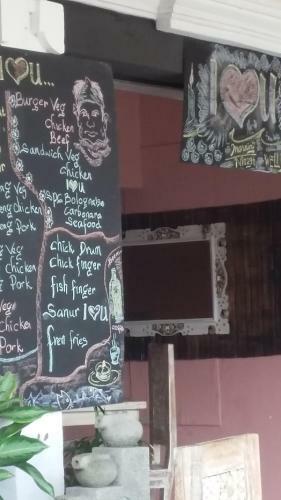 I ♡ u...
Burger Veg
Chicken
Beef
Sandwich Veg
Chicken
I ♡ u
Spg Bolognaise
Carbonara
Seafood
ng Veg
eng Chicken
ng Pork
Veg
Chicken
Pork
Chicken
Pork
chick Drum
Chick finger
fish finger
Sanur I ♡ u
Fren fries
I ♡ u